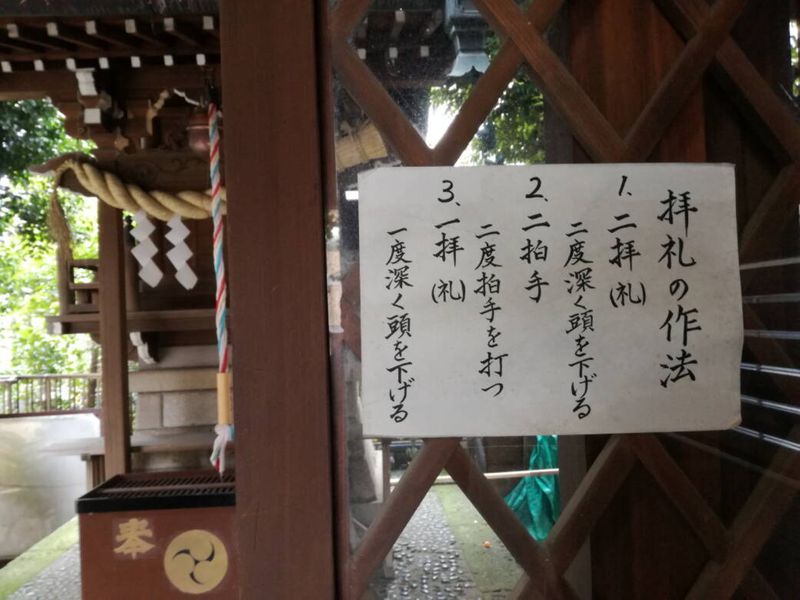 拝礼の作法
1、二拝(礼)
二度深く頭を下げる
2、二拍手
二度拍手を打つ
3、一拝(礼)
一度深く頭を下げる
奉